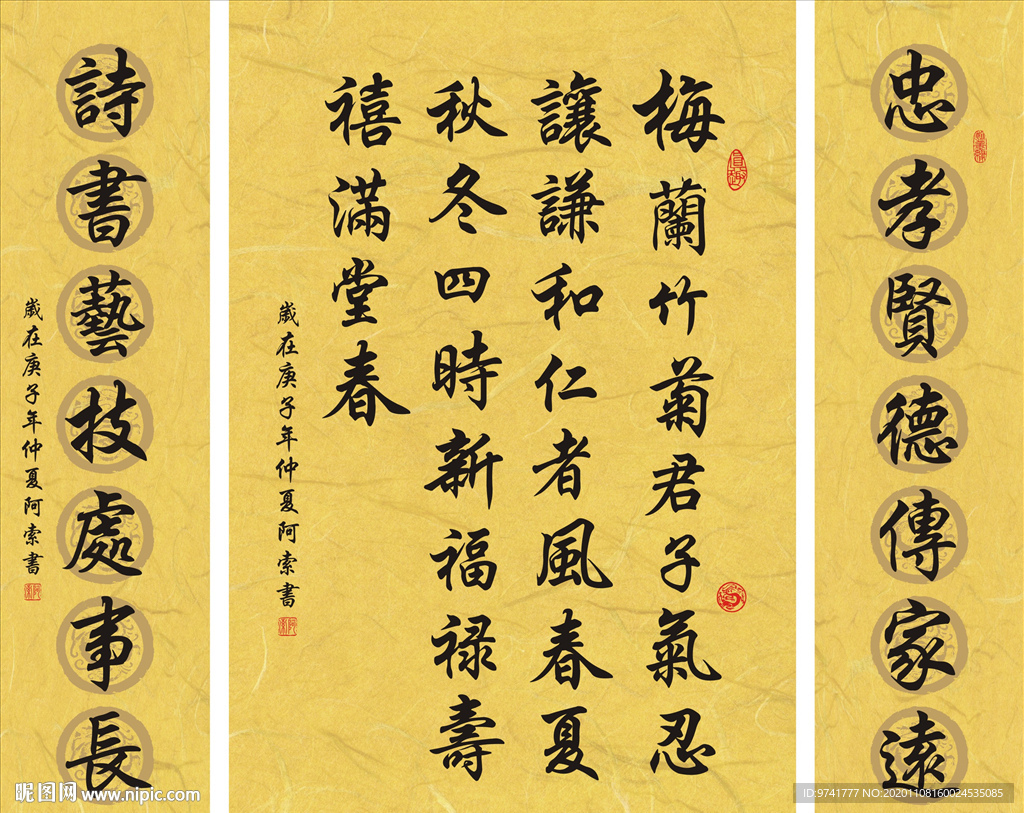 忠孝賢德傳家遠
梅蘭竹菊君子氣忍
讓謙和仁者風春夏
秋冬四時新福禄壽
禧滿堂春
歲在庚子年仲夏阿索書
詩書藝技處事長
歲在庚子年仲夏阿索書
昵图网 www.nipic.com
ID:9741777 NO:20201108160024535085